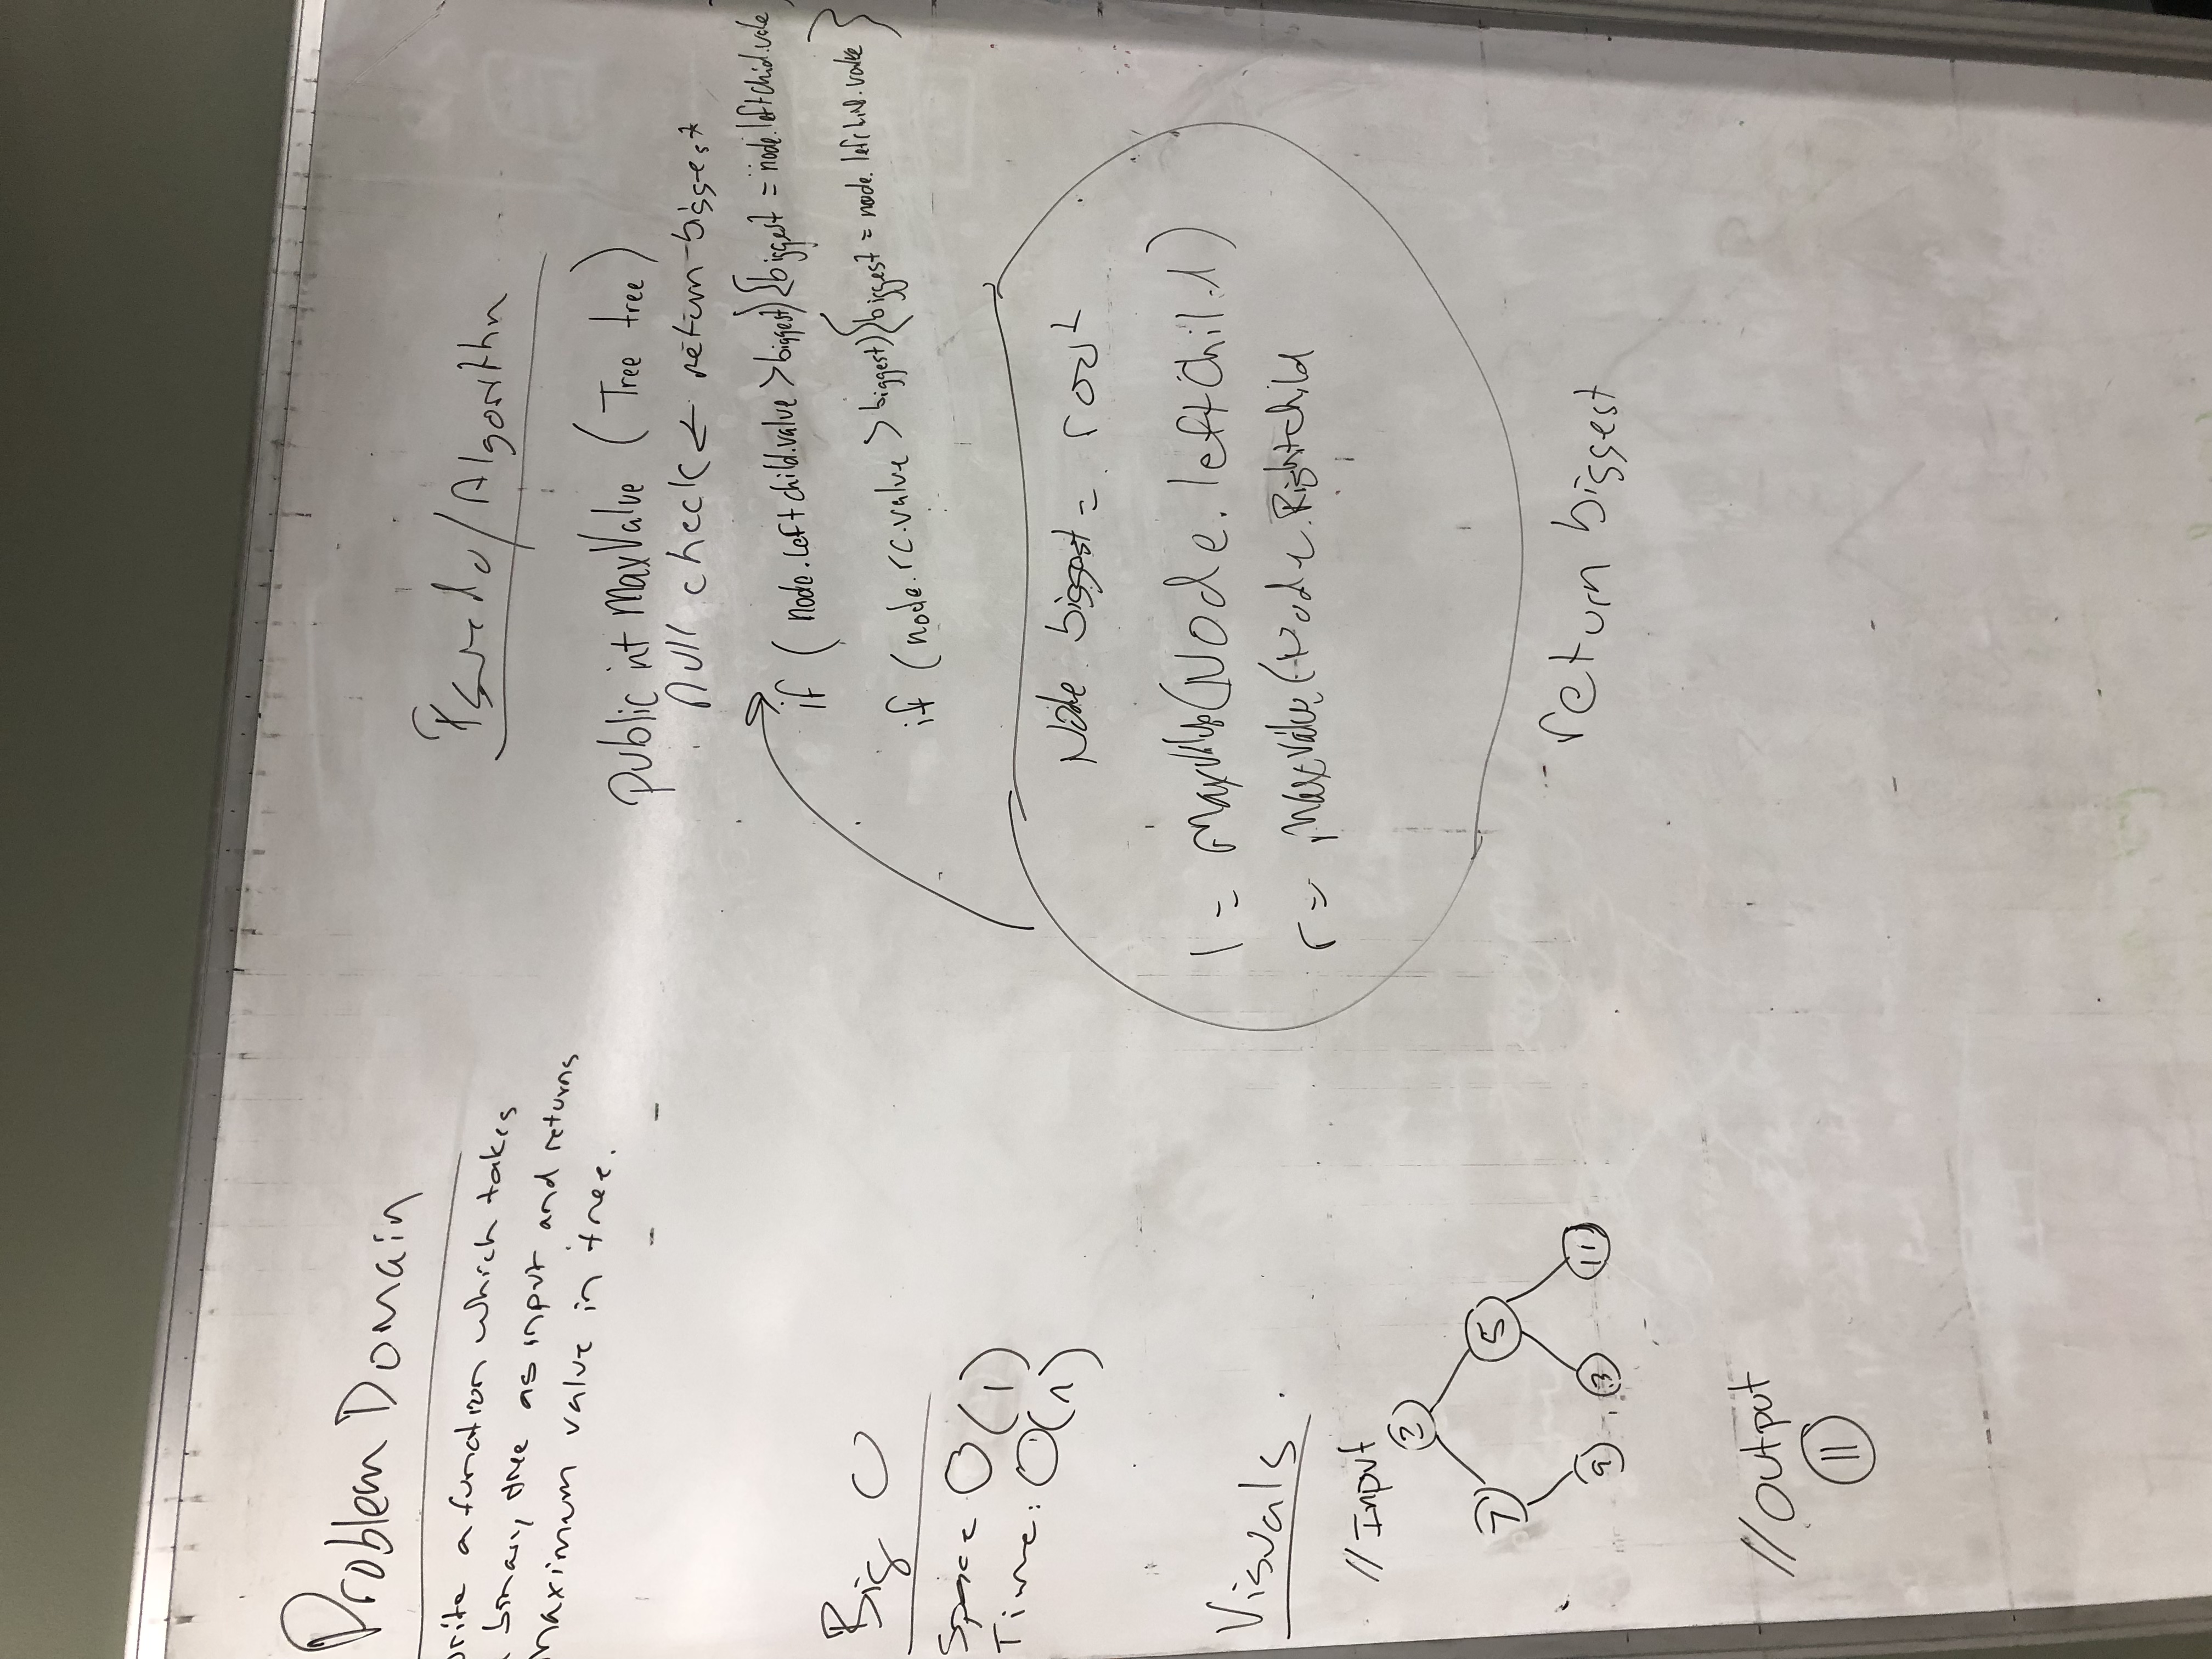 Problem Domain
rite a function which takes
binary tree as input and returns
maximum value in tree.
Big O
Space O(1)
Time: O(n)
Visuals
// Input
2
7 5
9 3 11
// Output
11
Psuedo/Algorithm
Public int MaxValue (Tree tree)
Null check ← return biggest
if (node.Left child.value > biggest) {biggest = node.leftChid.vale
if (node.rc.value > biggest) {biggest = node.}
Node biggest = root
l = maxValue(Node.leftChild)
r = maxValue(Node.Rightchild
return biggest